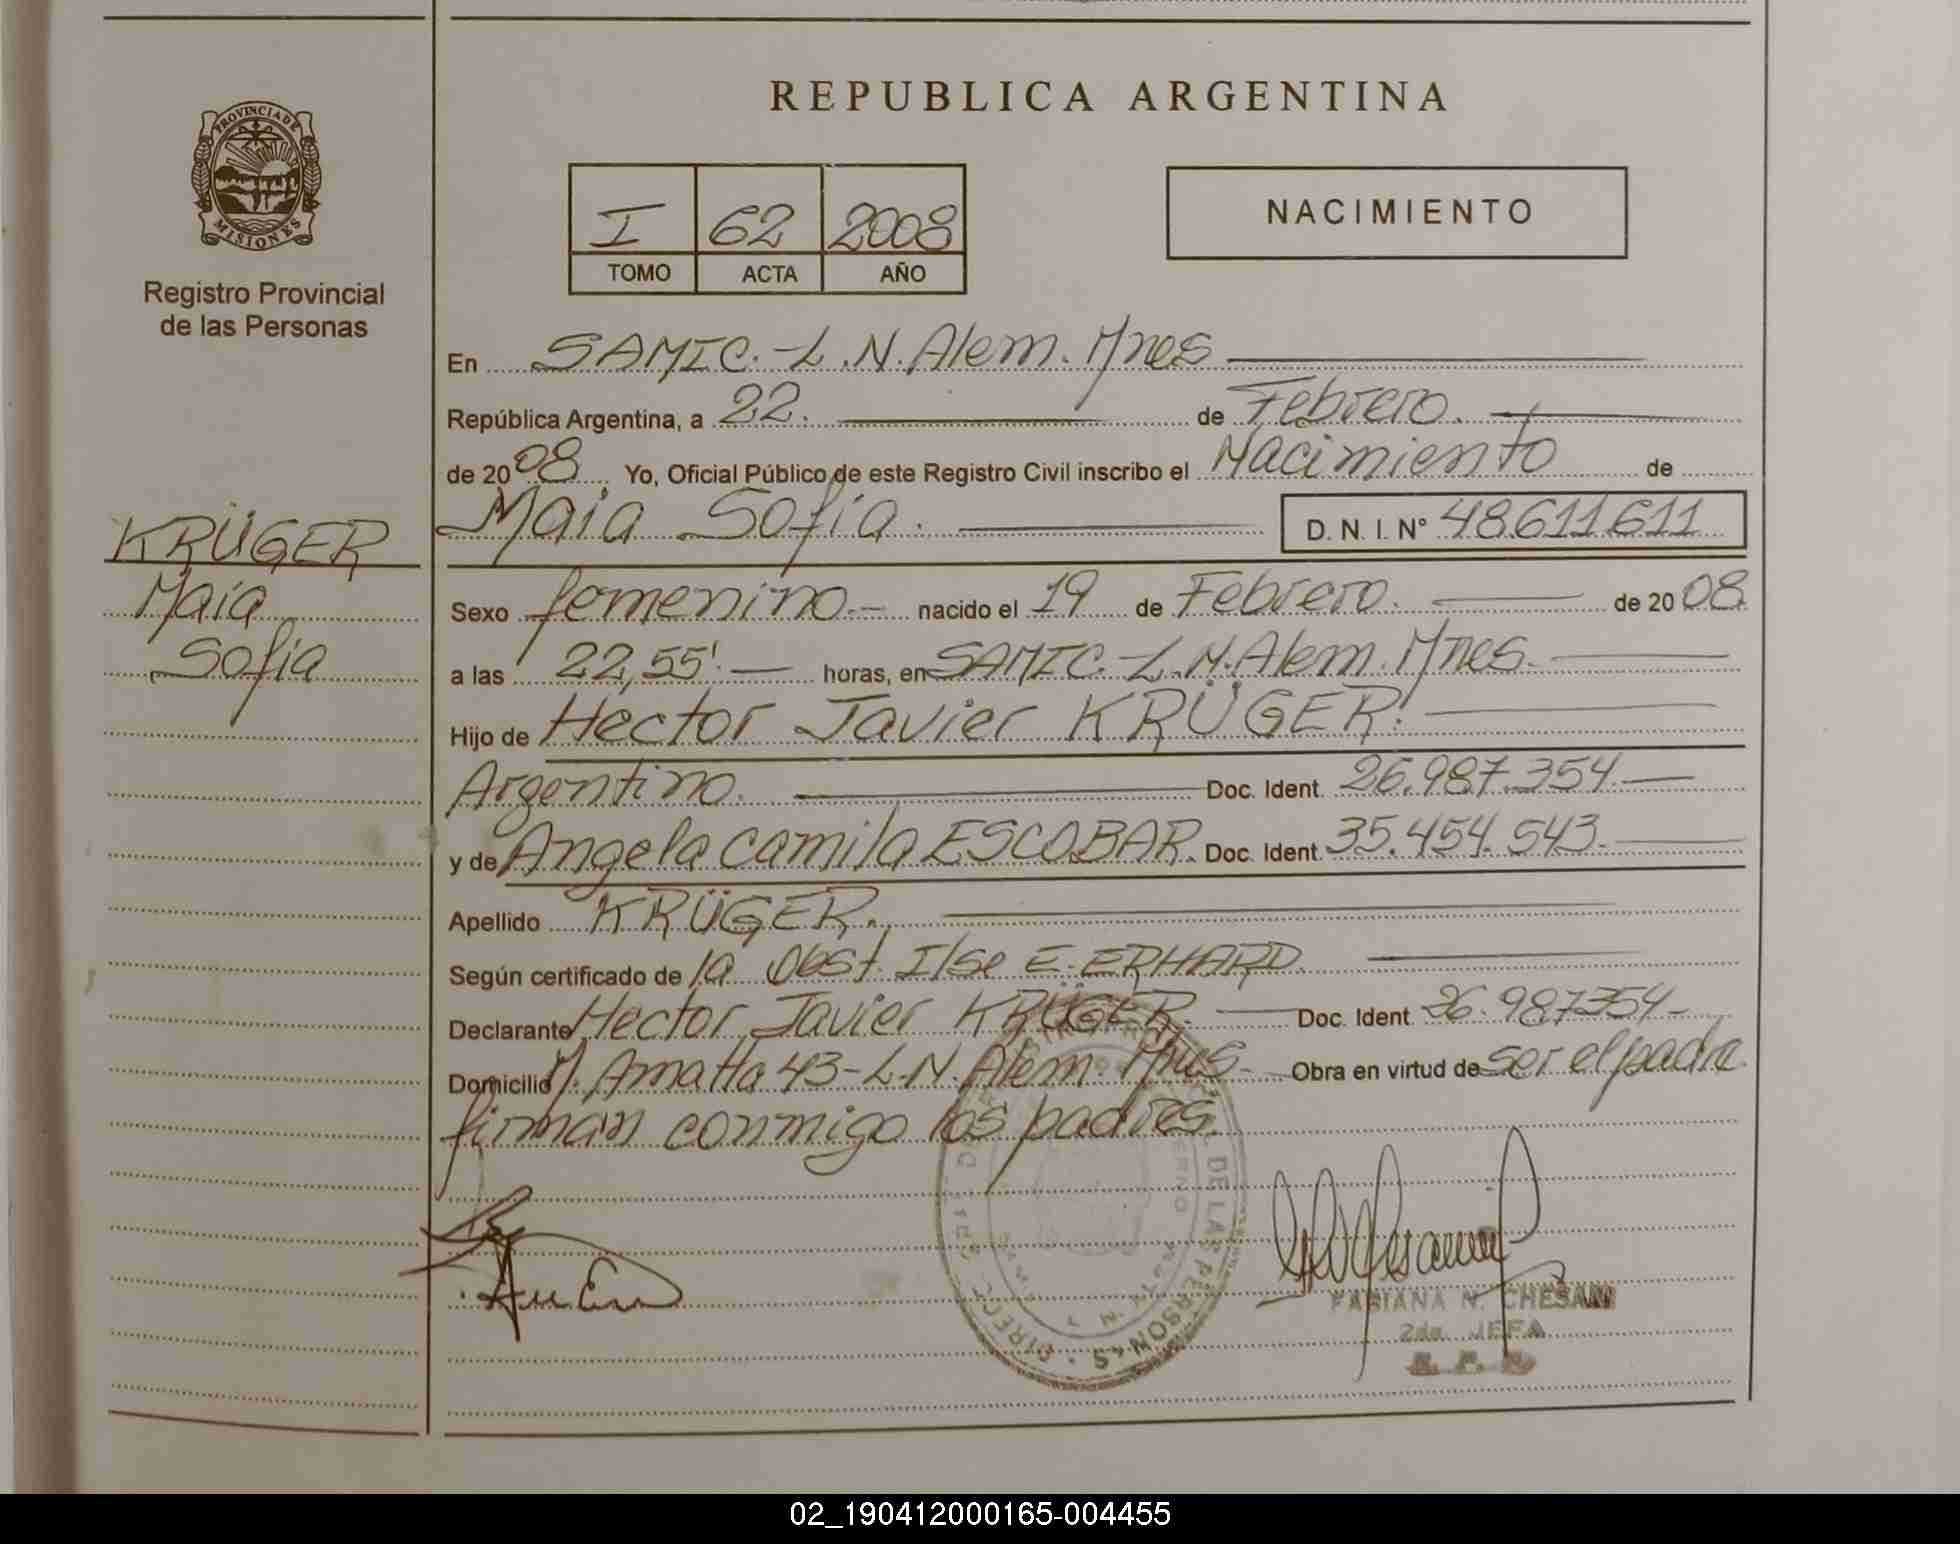 REPUBLICA ARGENTINA
PROVINCIA DE
MISIONES
Registro Provincial
de las Personas
I 62 2008
TOMO ACTA AÑO
NACIMIENTO
En SAMIC.-L.N.Alem.Mnes
República Argentina, a 22. de Febrero.
de 2008 Yo, Oficial Público de este Registro Civil inscribo el Nacimiento de
KRÜGER
Maia
Sofia
Maia Sofia. D. N. I. N° 48.611.611
Sexo femenino.- nacido el 19 de Febrero. de 2008.
a las 22,55'. horas, en SAMIC.-L.N.Alem.Mnes.
Hijo de Hector Javier KRÜGER.
Argentino. Doc. Ident. 26.987.354.
y de Angela Camila ESCOBAR. Doc. Ident. 35.454.543.
Apellido KRÜGER.
Según certificado de la Obst. Ilse E. ERHARD.
Declarante Hector Javier KRÜGER. Doc. Ident. 26.987354-
Domicilio M. Amatta 43-L.N.Alem. Mnes.- Obra en virtud de ser el padre.
firman conmigo los padres.
DE LAS PERSONAS
FABIANA N. CHESANI
2da. JEFA
02_190412000165-004455